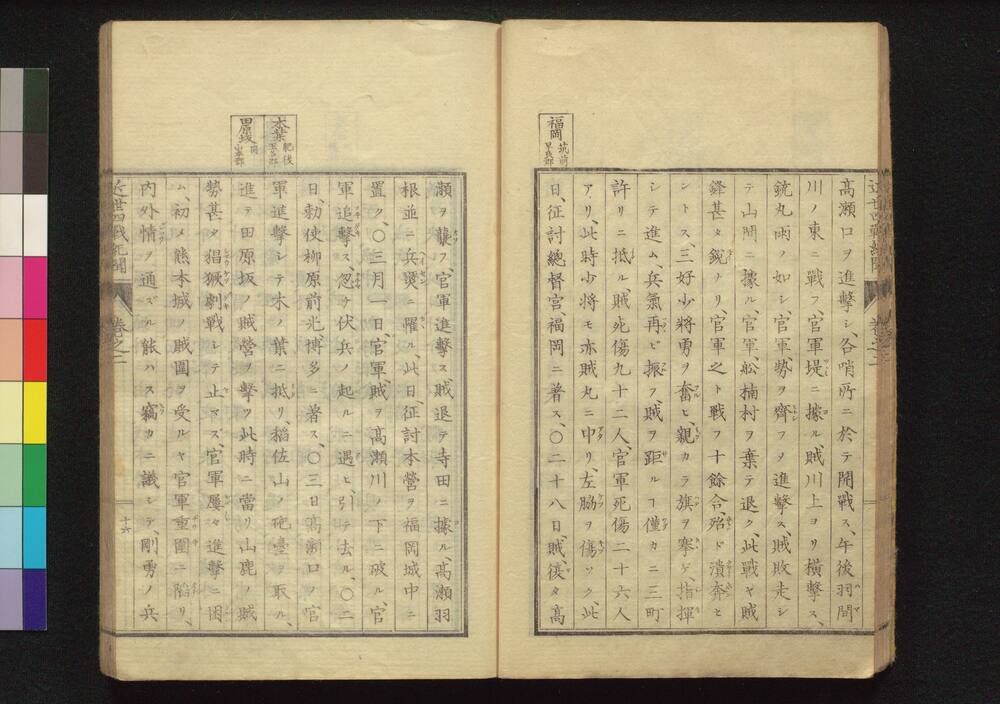 福岡
筑前
早良郡
高瀬口ヲ進擊シ、各哨所ニ於テ開戰ス、午後羽間
川ノ東ニ戰フ、官軍堤ニ據ル、賊川上ヨリ橫擊ス、
銃丸雨ノ如シ、官軍、勢ヲ齊フメ進擊ス、賊敗走シ
テ山間ニ據ル、官軍、舩楠村ヲ棄テ退ク、此戰ヤ賊
鋒甚タ銳ナリ、官軍之ト戰フ十餘合、殆ド潰奔セ
ントス、三好少將勇ヲ奮ヒ、親カラ旗ヲ搴ゲ、指揮
シテ進ム、兵氣再ビ振フ、賊ヲ距ルヿ僅カニ三町
許リニ抵ル、賊死傷九十二人、官軍死傷二十六人
アリ、此時少將モ亦賊丸ニ中リ、左脇ヲ傷ツク、此
日、征討總督宮、福岡ニ著ス、〇二十八日、賊、復タ高
近世四戰紀聞
卷之二
木葉
肥後
玉名郡
田原坂
同
山本郡
瀬ヲ襲フ、官軍進擊ス、賊退テ寺田ニ據ル、高瀬羽
根並ニ兵燹ニ罹ル、此日征討本營ヲ福岡城中ニ
置ク、〇三月一日、官軍、賊ヲ高瀬川ノ下ニ破ル、官
軍追擊ス、忽チ伏兵ノ起ルニ遇ヒ、引テ去ル、〇二
日、勅使柳原前光、博多ニ著ス、〇三日高瀬口ノ官
軍進擊シテ木ノ葉ニ抵リ、稻佐山ノ砲臺ヲ取ル、
進テ田原坂ノ賊營ヲ擊ツ、此時ニ當リ山鹿ノ賊
勢甚タ猖獗劇戰シテ止マズ、官軍屢々進擊ニ困
ム、初メ熊本城ノ賊圍ヲ受ルヤ官軍重圍ニ陷リ、
內外情ヲ通ズル能ハス竊カニ議シテ、剛勇ノ兵
近世四戰紀聞
卷之二
十六